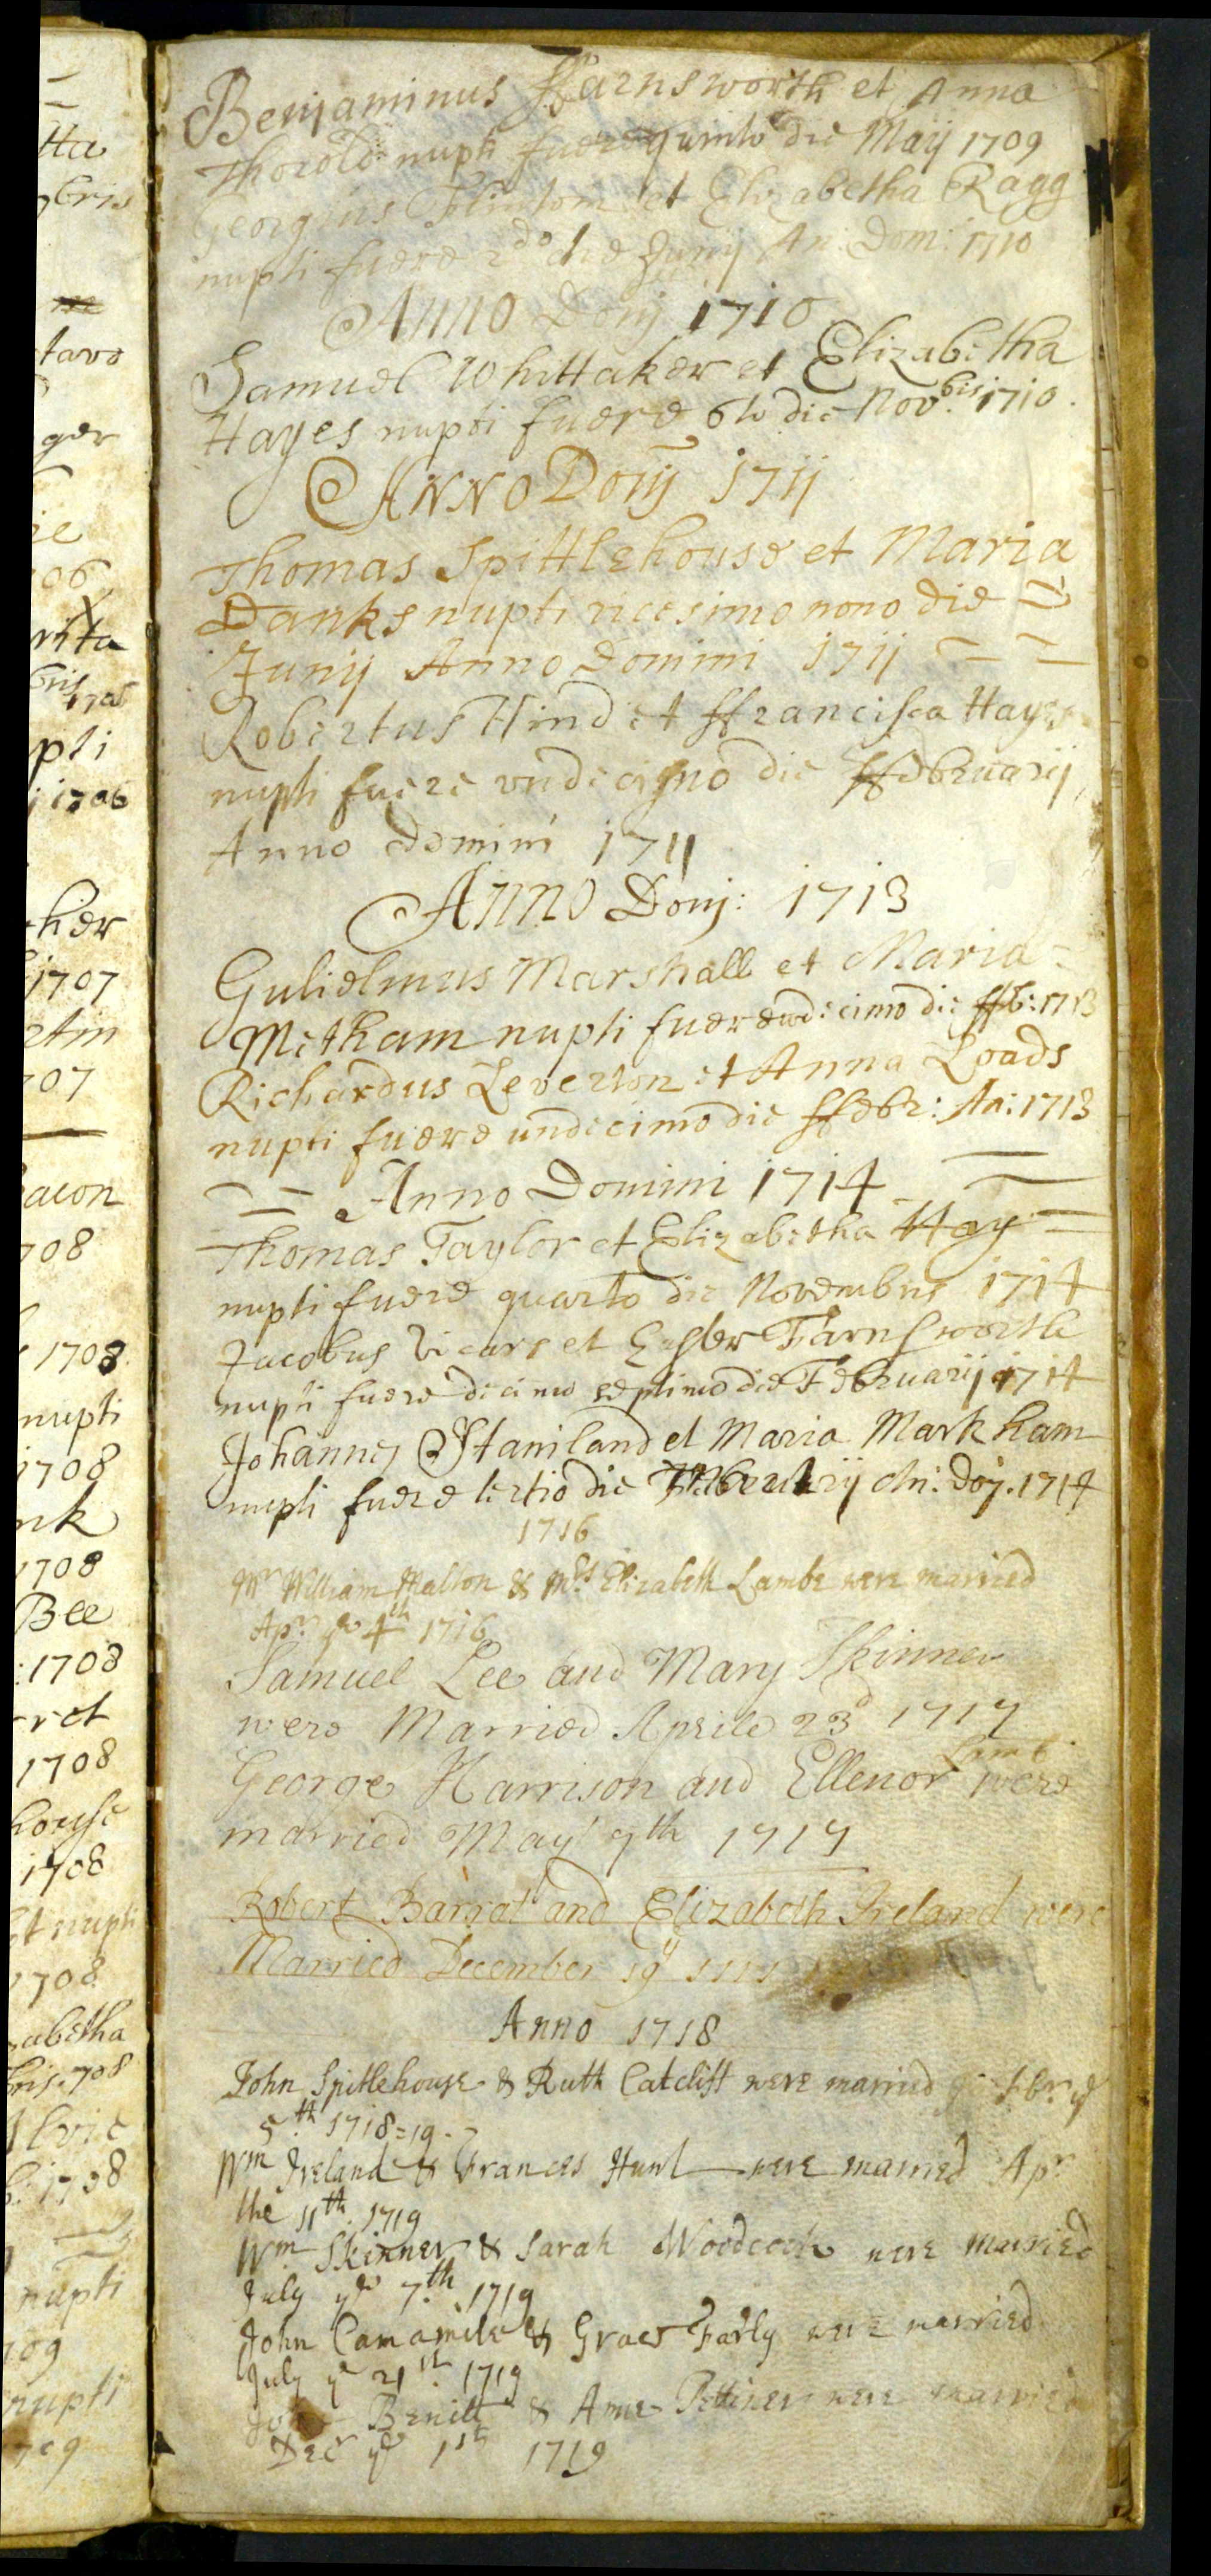 Benjaminus Ffarnsworth et Anna
Thorold nupti fuere quinto die Maij 1709
Georgius Flintom et Elizabetha Ragg
nupti fuere 2do die Junij An: Dom: 1710
Anno Domj 1710
Samuel Whittaker et Elizabetha
Hayes nupti fuere 6to die Novbris 1710.
Anno Domj 1711
Thomas Spittlehouse et Maria
Danks nupti vicesimo nono die
Junij Anno Domini 1711
Robertus Hind et Ffrancisca Hayes
nupti fuere undecimo die Ffebruarij
Anno Domini 1711
Anno Domj: 1713
Gulielmus Marshall et Maria
Metham nupti fuere undecimo die Ffeb: 1713
Richardus Leverton et Anna Loads
nupti fuere undecimo die Ffebr: An: 1713
Anno Domini 1714
Thomas Taylor et Elizabetha Hay
nupti fuere quarto die Novembris 1714
Jacobus Vicars et Hester Farnsworth
nupti fuere decimo septimo die Februarij 1714
Johannes Staniland et Maria Markham
nupti fuere tertio die Februarij An: Doj. 1714
1716
Mr William Halton & Mrs Elizabeth Lambe were married
Apr ye 4th 1716
Samuel Lee and Mary Skinner
were Married Aprile 23d 1717
George Harrison and Ellenor Lamb were
married May 7th 1717
Robert Barrat and Elizabeth Ireland were
Married December 19
Anno 1718
John Spittlehouse & Ruth Catcliff were married Febr ye
5th 1718=19.
Wm Ireland & Frances Hunt were married Apr
the 11th 1719
Wm Skinner & Sarah Woodcock were married
July ye 7th 1719
John Camamile & Grace Farly were married
July ye 21st 1719
Benitt & Anne were married
Decr ye 1st 1719